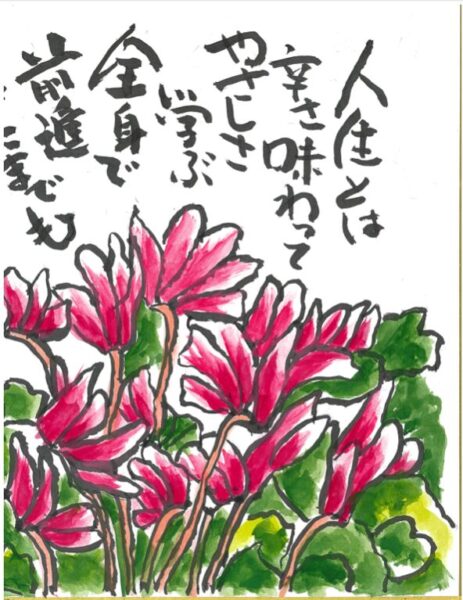 人生とは
辛さ味わって
やさしさ
学ぶ
全身で
前進
こまでも